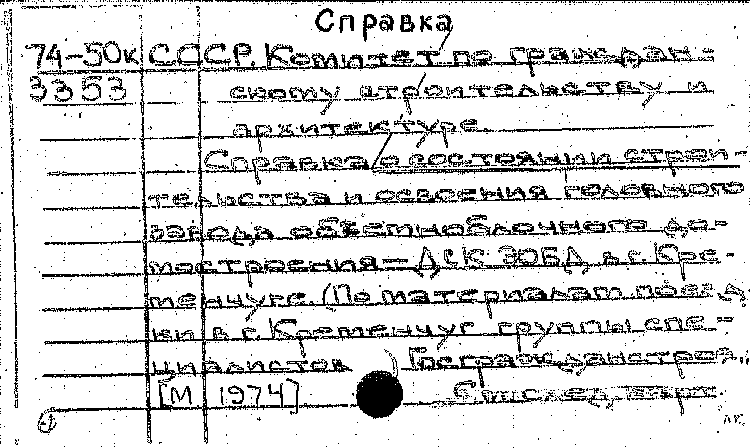 Справка
74-50к СССР. Комитет по граждан-
3353 скому строительству и
архитектуре.
Справка о состоянии строи-
тельства и освоения головного
завода объемноблочного до-
мостроения — ДСК ЗОБД в г. Кре-
менчуге. (По материалам поезд-
ки в г. Кременчуг группы спе-
циалистов Госгражданстроя..
[М 1974] б.м. след. карт.